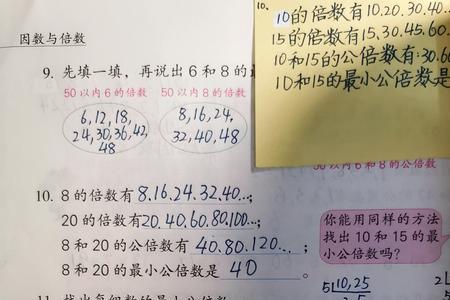 因数与倍数
10.
10的倍数有10.20.30.40...
15的倍数有15.30.45.60.
10和15的公倍数有:30.60
10和15的最小公倍数是
9. 先填一填，再说出 6 和 8 的
50 以内 6 的倍数
50 以内 8 的倍数
6,12,18,
24,30,36,42,
48
8,16,24,
32,40,48
50以内 6 和 8 的公倍数
10. 8 的倍数有8.16.24.32.40…;
20 的倍数有20.40.60.80.100…;
8 和 20 的公倍数有 40.80.120…;
8 和 20 的最小公倍数是 40 。
你能用同样的方法
找出 10 和 15 的最
小公倍数吗?
5 10,25